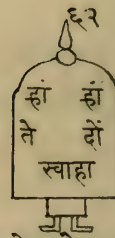 ६२
हां हां
ते दों
स्वाहा